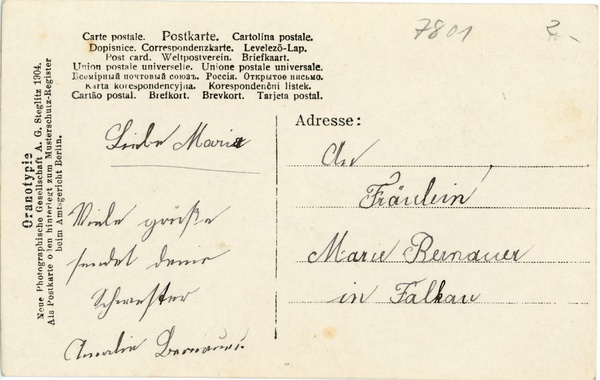 7801
2.-
Carte postale. Postkarte. Cartolina postale.
Dopisnice. Correspondenzkarte. Levelező-Lap.
Post card. Weltpostverein. Briefkaart.
Union postale universelle. Unione postale universale.
Всемірный почтовый союзъ. Россія. Открытое письмо.
Karta korespondencyjna. Korespondenční lístek.
Cartão postal. Brefkort. Brevkort. Tarjeta postal.
Oranotypie
Neue Photographische Gesellschaft A. G. Steglitz 1904.
Als Postkarte offen hinterlegt zum Musterschutz-Register
beim Amtsgericht Berlin.
Liebe Marie
Viele grüße
sendet deine
Schwester
Amalie Bernauer.
Adresse:
An
Fräulein
Marie Bernauer
in Falkau